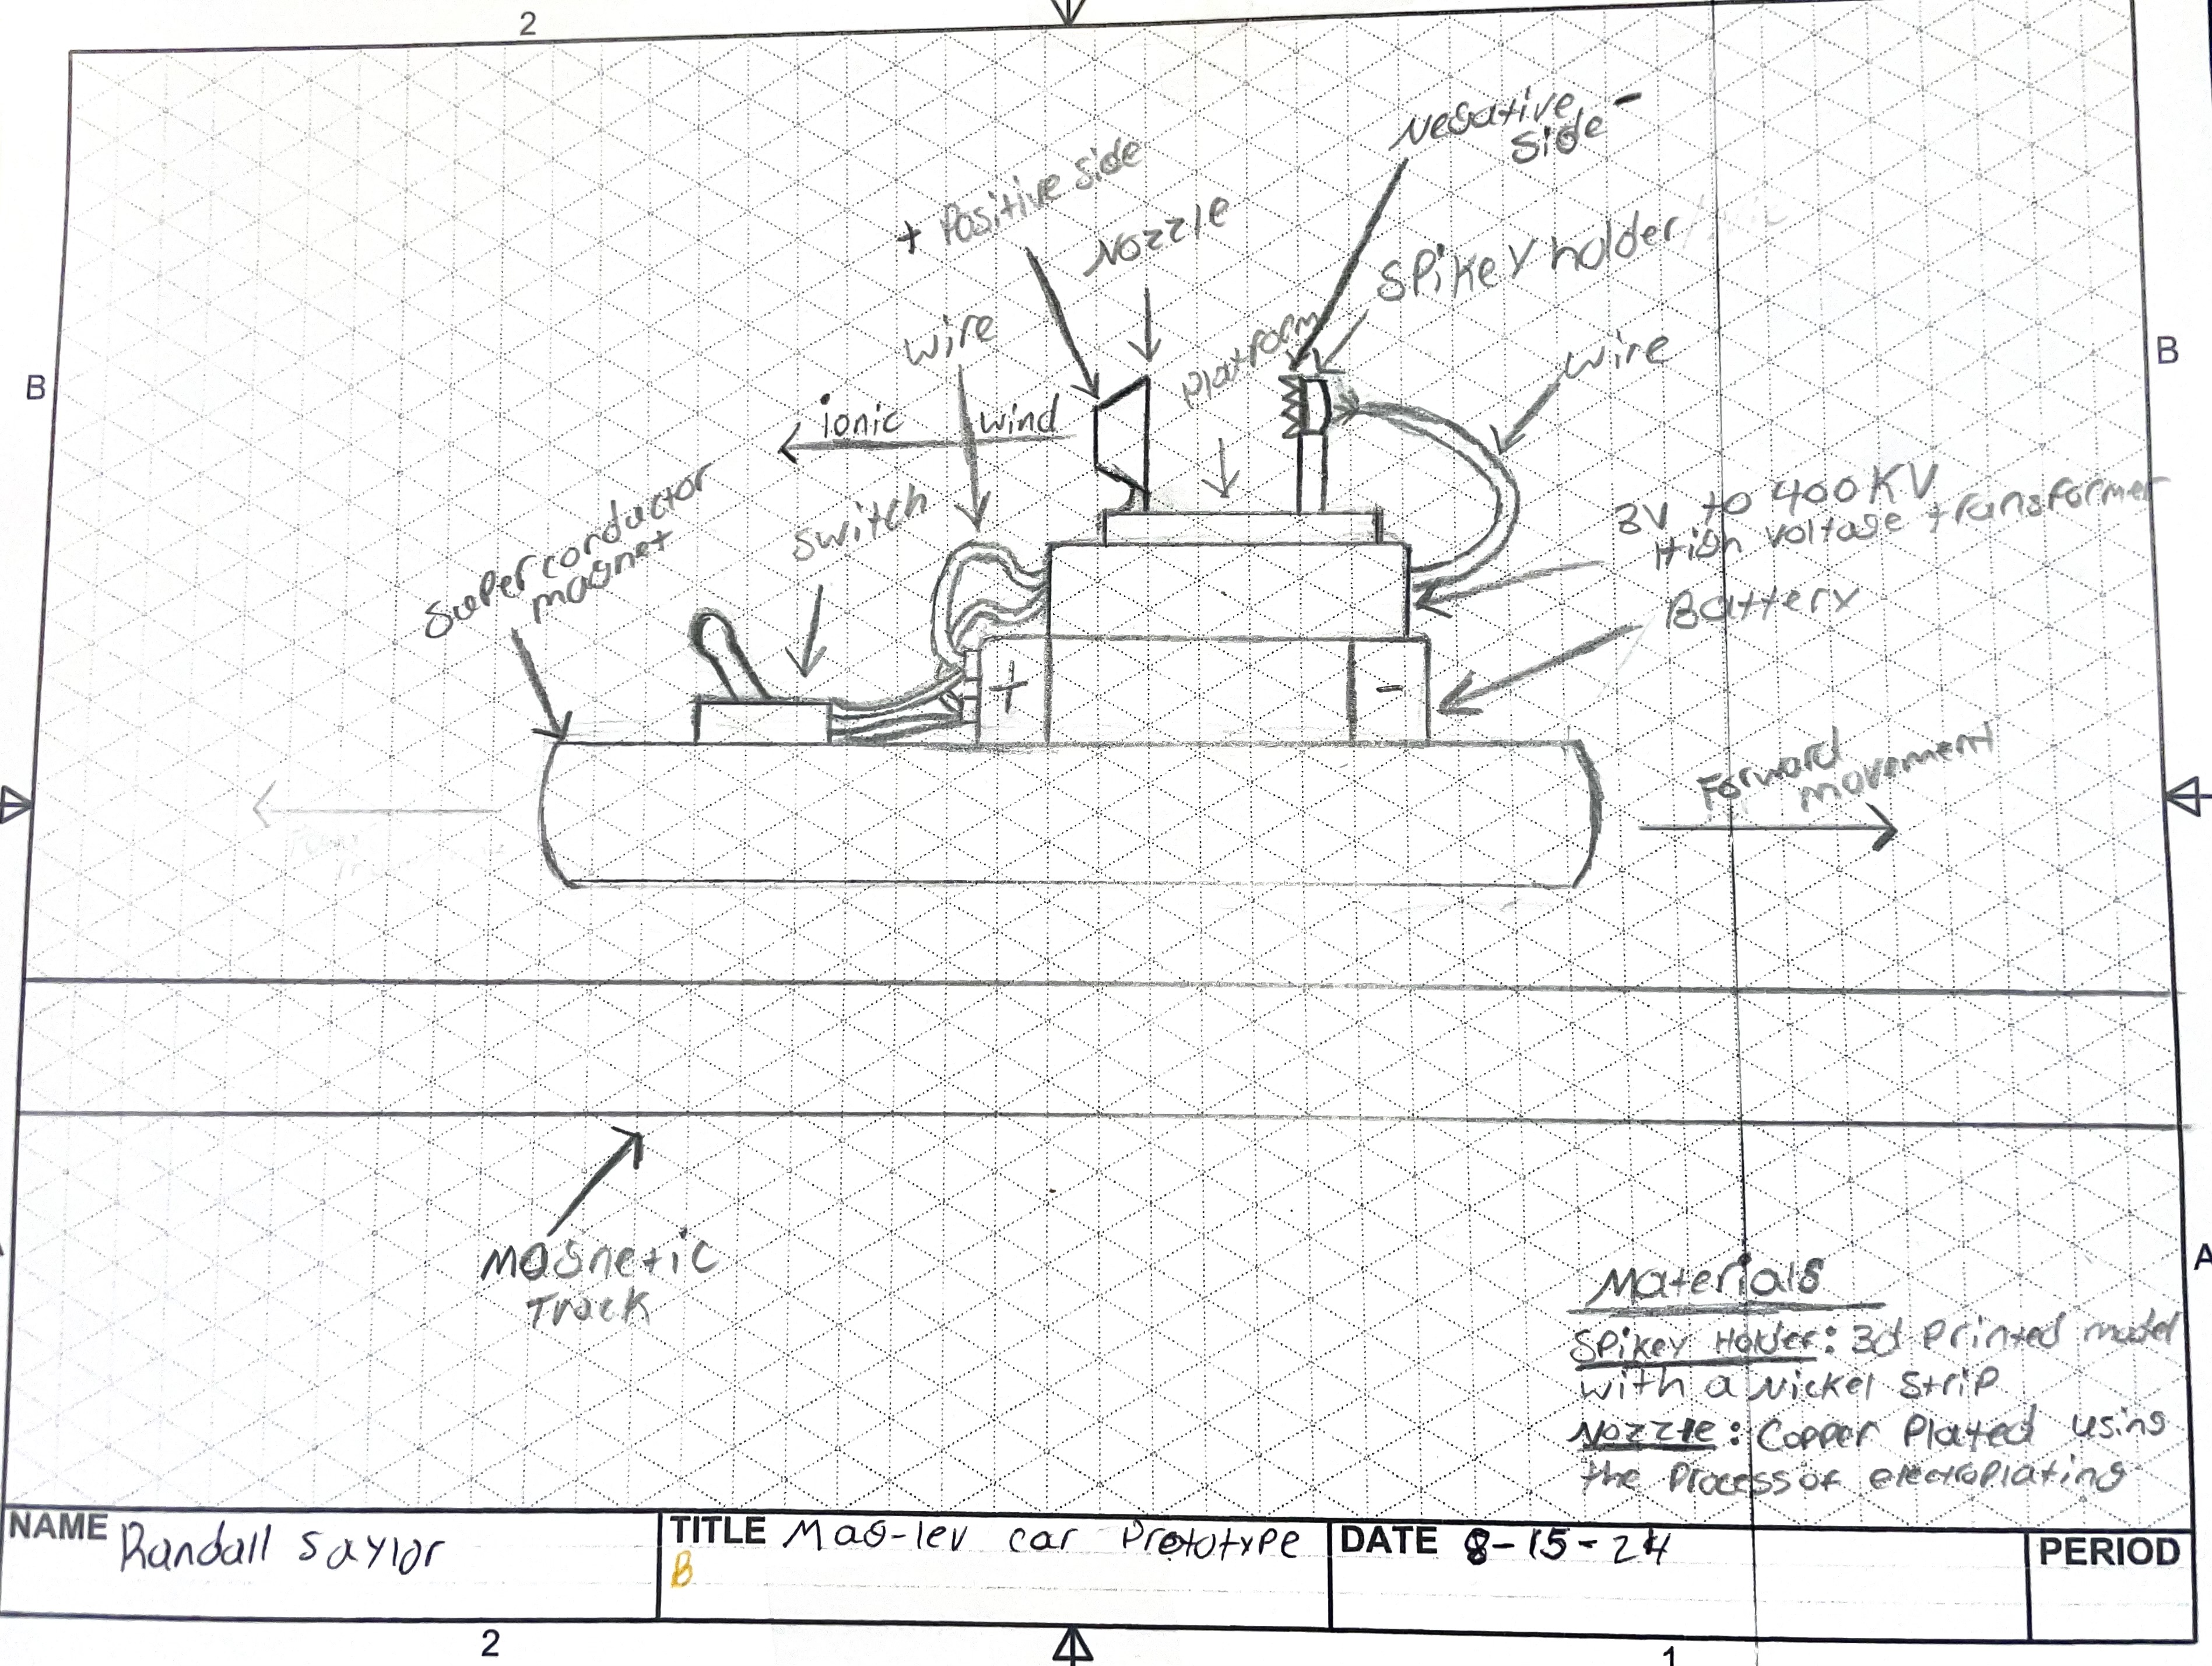 2
Negative -
Side
+ Positive side
Nozzle
Spikey holder
wire
platform
wire
B
B
ionic wind
3V to 400KV
High voltage transformer
Switch
Super conductor
magnet
Battery
+
-
Forward
movement
Magnetic
Track
A
Materials
Spikey Holder: 3d Printed model
with a Nickel Strip
Nozzle: Copper Plated using
the Process of electroplating
NAME Randall Saylor
TITLE Mag-lev car Prototype
B
DATE 8-15-24
PERIOD
2
1